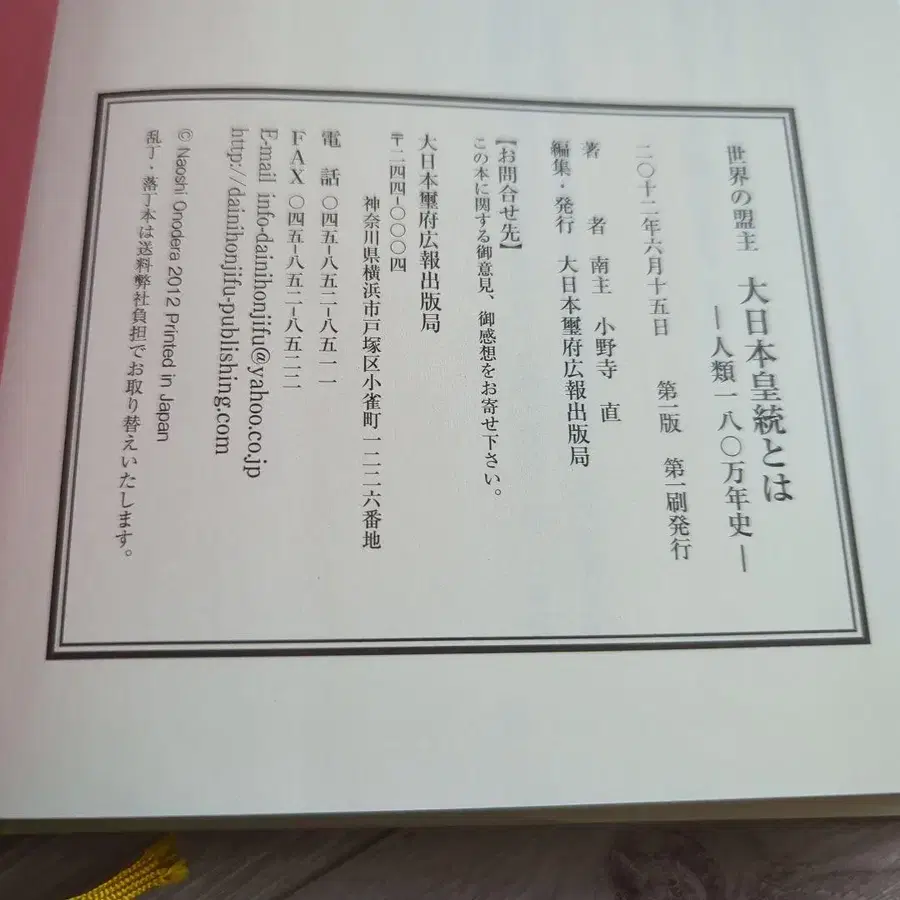 世界の盟主　大日本皇統とは
―人類一八〇万年史―
二〇十二年六月十五日　第一版　第一刷発行
著　者　南主　小野寺　直
編集・発行　大日本璽府広報出版局
【お問合せ先】
この本に関する御意見、御感想をお寄せ下さい。
大日本璽府広報出版局
〒二四四-〇〇〇四
神奈川県横浜市戸塚区小雀町一二二六番地
電　話　〇四五-八五二-八五一一
ＦＡＸ　〇四五-八五二-八五二二
E-mail info-dainihonjifu@yahoo.co.jp
http://dainihonjifu-publishing.com
© Naoshi Onodera 2012 Printed in Japan
乱丁・落丁本は送料弊社負担でお取り替えいたします。